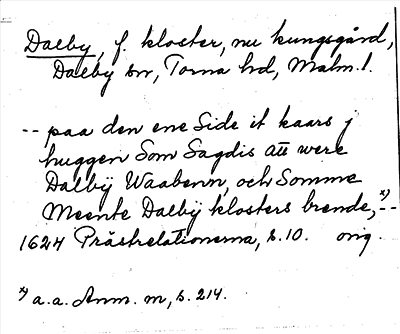 Dalby, f. kloster, nu kungsgård,
Dalby sn, Torna hd, Malm. l.
-- paa den ene Side it kaars j
huggen Som Sagdis att were
Dalbÿ Waabenn, och Somme
Meente Dalbÿ klosters brende,*) --
1624 Prästrelationerna, s. 10. orig.
*) a.a. Anm. m, s. 214.